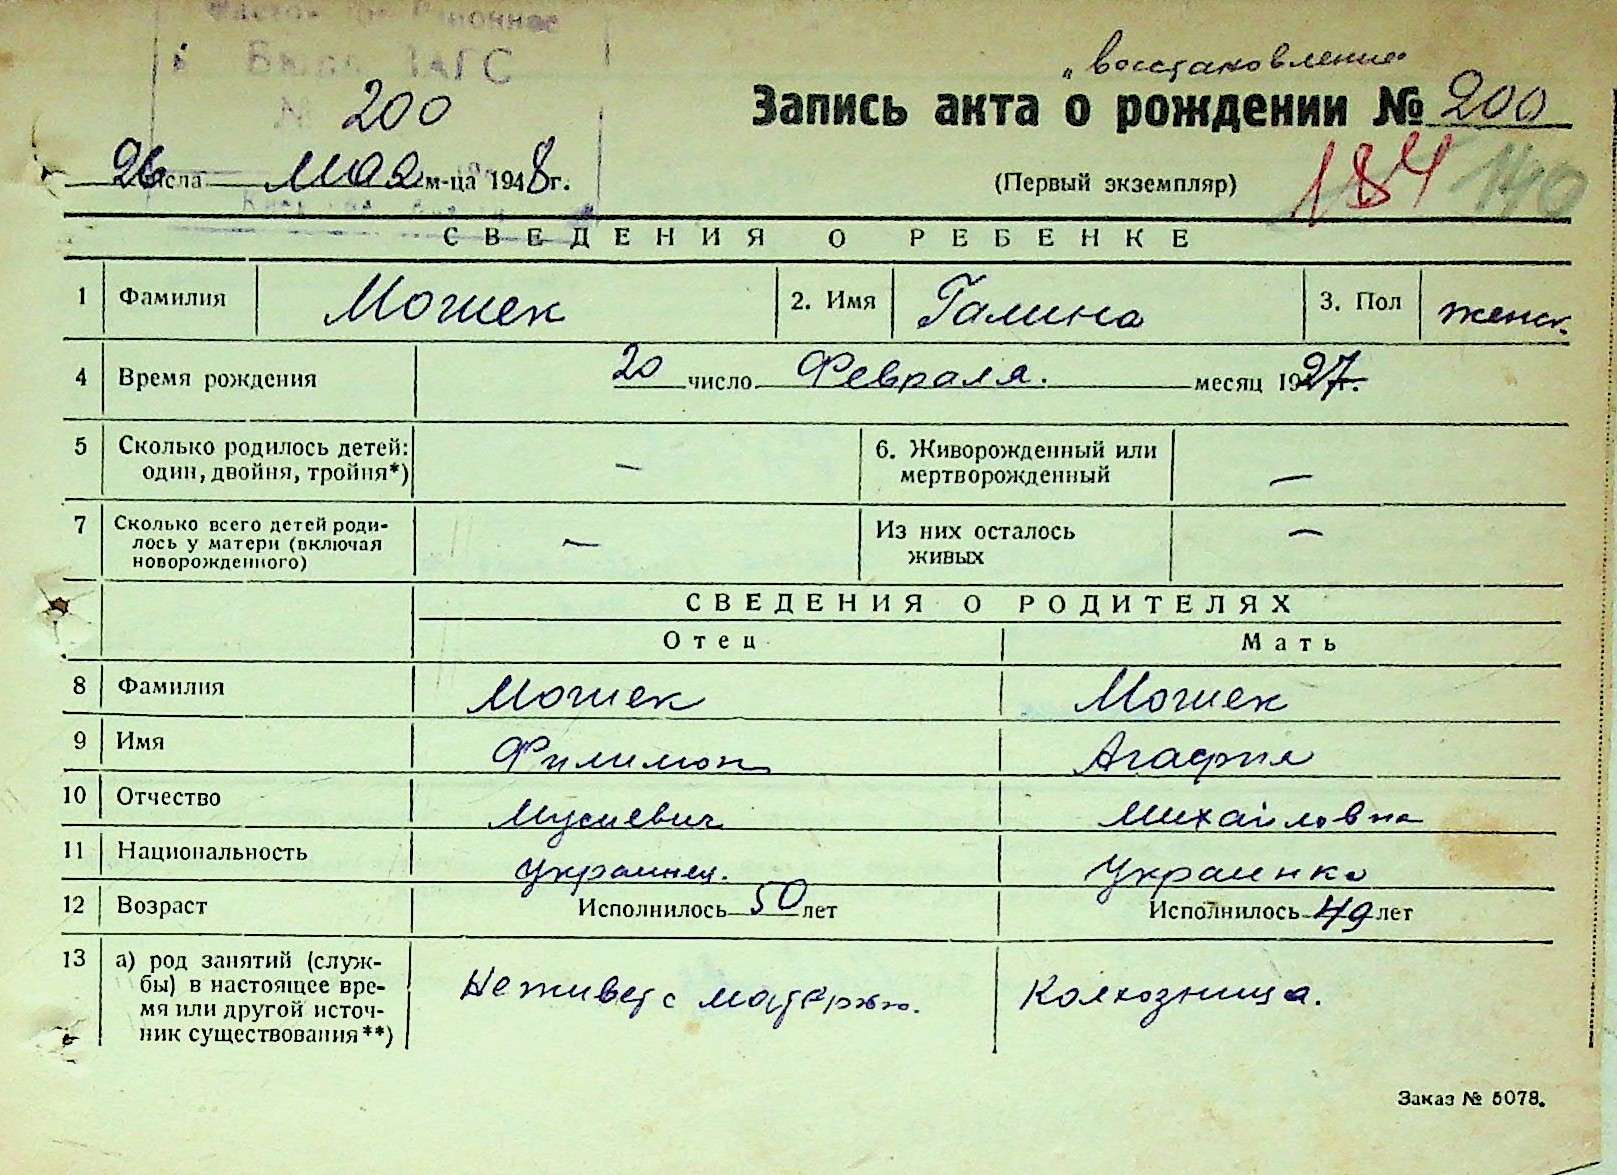 Бюро ЗАГС
№ 200
26 числа мая м-ца 1948 г.
"восстановление"
Запись акта о рождении № 200
(Первый экземпляр) 184 140
СВЕДЕНИЯ О РЕБЕНКЕ
1 Фамилия Могиек 2. Имя Галина 3. Пол женск.
4 Время рождения 20 число Февраля. месяц 1927 г.
5 Сколько родилось детей: один, двойня, тройня*) — 6. Живорожденный или мертворожденный —
7 Сколько всего детей роди-
лось у матери (включая
новорожденного) — Из них осталось живых —
СВЕДЕНИЯ О РОДИТЕЛЯХ
Отец Мать
8 Фамилия Могиек Могиек
9 Имя Филимон Агафия
10 Отчество Мусиевич Михайловна
11 Национальность Украинец. Украинка
12 Возраст Исполнилось 50 лет Исполнилось 49 лет
13 а) род занятий (служ-
бы) в настоящее вре-
мя или другой источ-
ник существования**) Не живет с матерью. Колхозница.
Заказ № 5078.